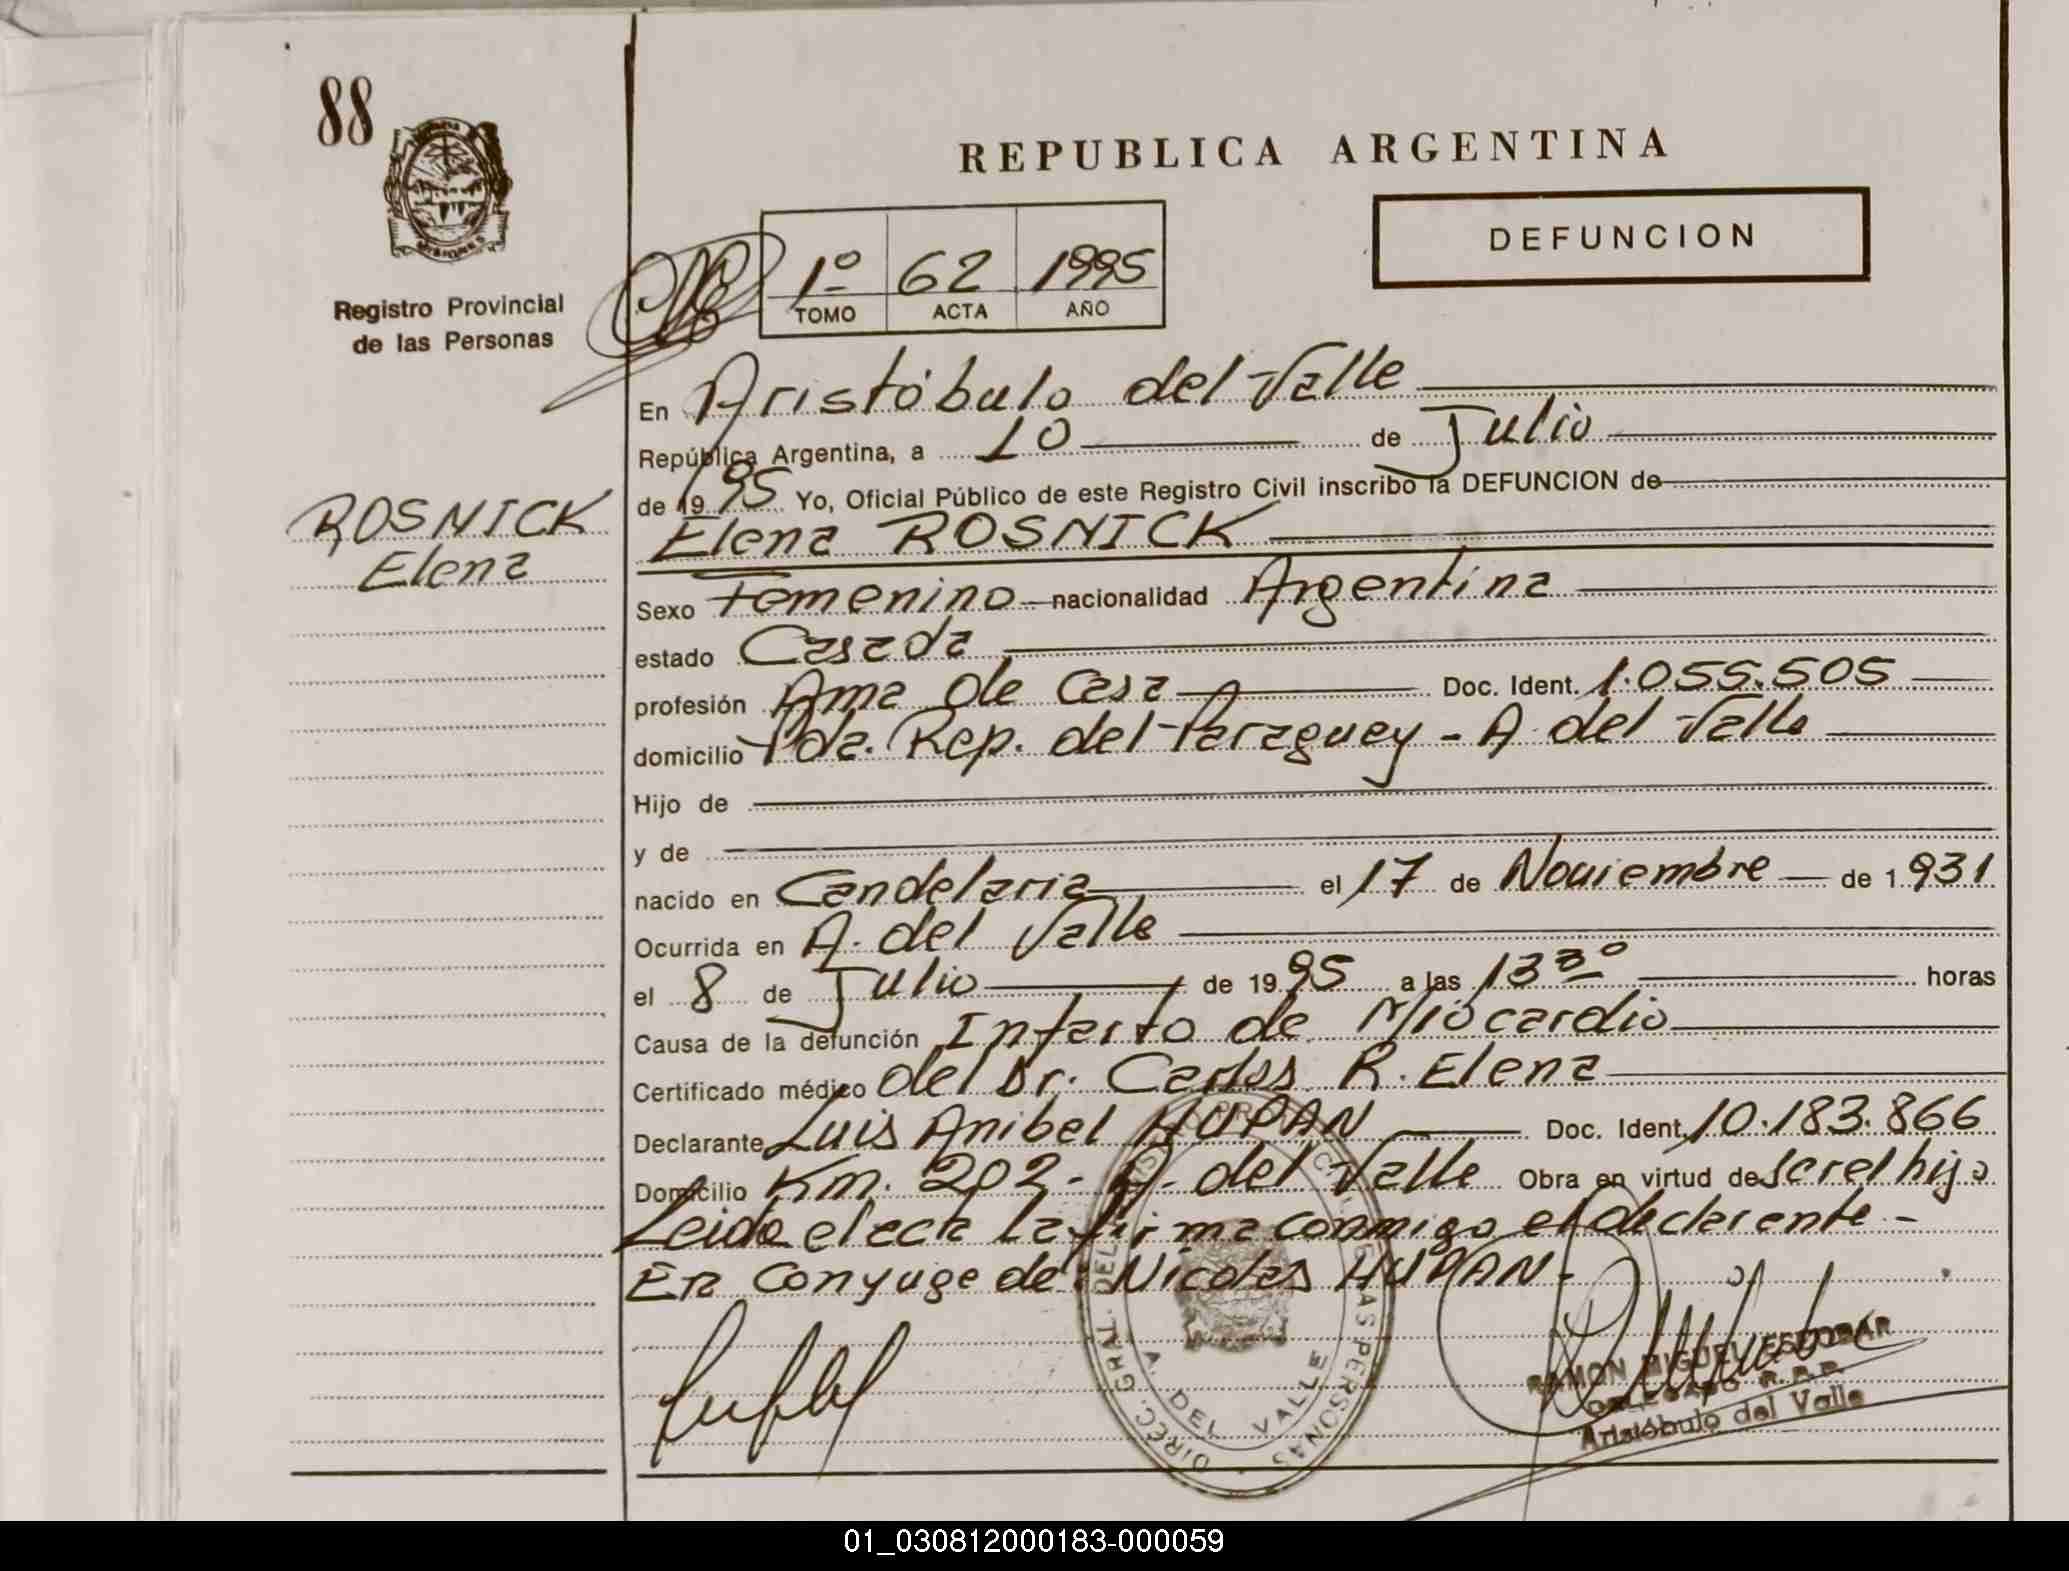 88
MISIONES
Registro Provincial
de las Personas
REPUBLICA ARGENTINA
1º 62 1995
TOMO ACTA AÑO
DEFUNCION
ROSNICK
Elena
En Aristóbulo del Valle
República Argentina, a 10 de Julio
de 1995 Yo, Oficial Público de este Registro Civil inscribo la DEFUNCION de
Elena ROSNICK
Sexo Femenino nacionalidad Argentina
estado Casada
profesión Ama de Casa Doc. Ident. 1.055.505
domicilio Pda. Rep. del Paraguay - A. del Valle
Hijo de
y de
nacido en Candelaria el 17 de Noviembre de 1.931
Ocurrida en A. del Valle
el 8 de Julio de 1995 a las 13 30 horas
Causa de la defunción Infarto de Miocardio
Certificado médico del Dr. Carlos R. Elena
Declarante Luis Anibal HUPAN Doc. Ident. 10.183.866
Domicilio Km. 202 - A. del Valle Obra en virtud de ser el hijo
Leida el acta la firma conmigo el declarante -
Era Conyuge de: Nicolas HUPAN -
DIREC. GRAL. DEL CIVIL LAS PERSONAS
A. DEL VALLE
RAMON MIGUEL ESCOBAR
DELEGADO R.P.P.
Aristóbulo del Valle
01_030812000183-000059